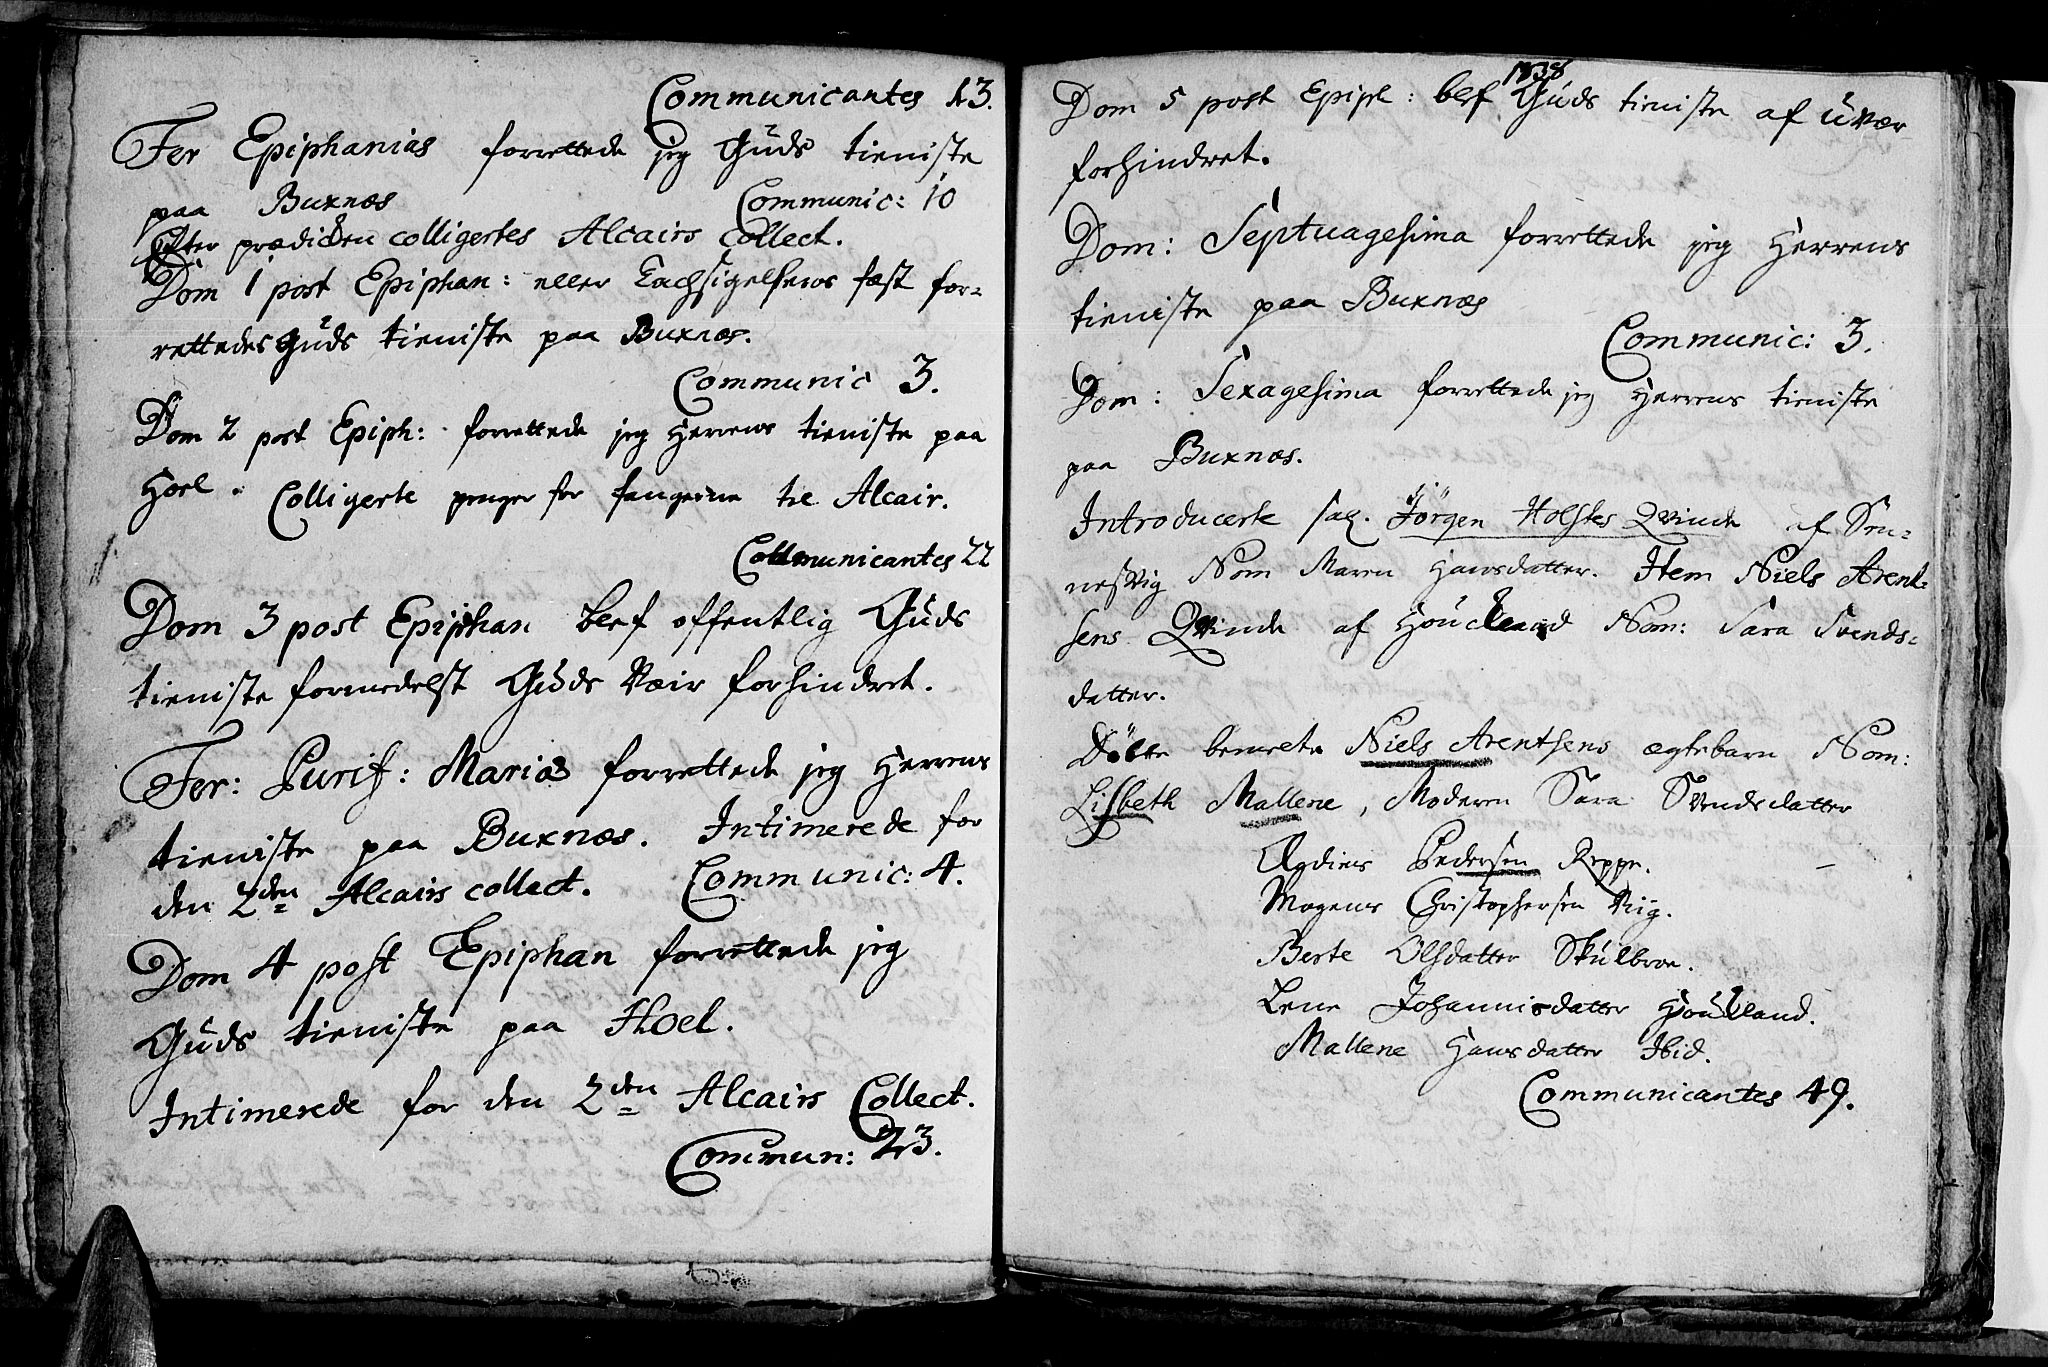 Communicantes 23.
Fer Epiphanias forrettede jeg Guds tieniste
paa Buxnæs Communic: 10
Efter prædicken colligertes Alcairs Collect.
Dom 1 post Epiphan: eller Tachsigelsens fæst for-
rettedes Guds tieniste paa Buxnæs.
Communic 3.
Dom 2 post Epiph: forrettede jeg Herrens tieniste paa
Hoel. Colligerte penger for fangerne til Alcair.
Communicantes 22
Dom 3 post Epiphan blef offentlig Guds
tieniste formedelst Guds Væir forhindret.
Fer: Purif: Mariæ forrettede jeg Herrens
tieniste paa Buxnæs. Intimerede for
den 2den Alcairs collect. Communic: 4.
Dom 4 post Epiphan forrettede jeg
Guds tieniste paa Hoel.
Intimerede for den 2den Alcairs Collect.
Commun: 23.
1738
Dom 5 post Epiph: blef Guds tieniste af uvær
forhindret.
Dom: Septuagesima forrettede jeg Herrens
tieniste paa Buxnæs
Communic: 3.
Dom: Sexagesima forrettede jeg Herrens tieniste
paa Buxnæs.
Introducerte sal. Jörgen Holstes Qvinde af Sen-
nesvig Nom Maren Hansdatter. Item Niels Arent-
sens Qvinde af Houcland Nom: Sara Svends-
datter.
Döbte bemelte Niels Arentsens ægtebarn Nom:
Lisbeth Mallene, Moderen Sara Svendsdatter
Pedersen Reppe.
Mogens Christophersen Viig.
Berte Olsdatter Skulbroe.
Lene Johannisdatter Houkland.
Mallene Hansdatter Ibid.
Communicantes 49.